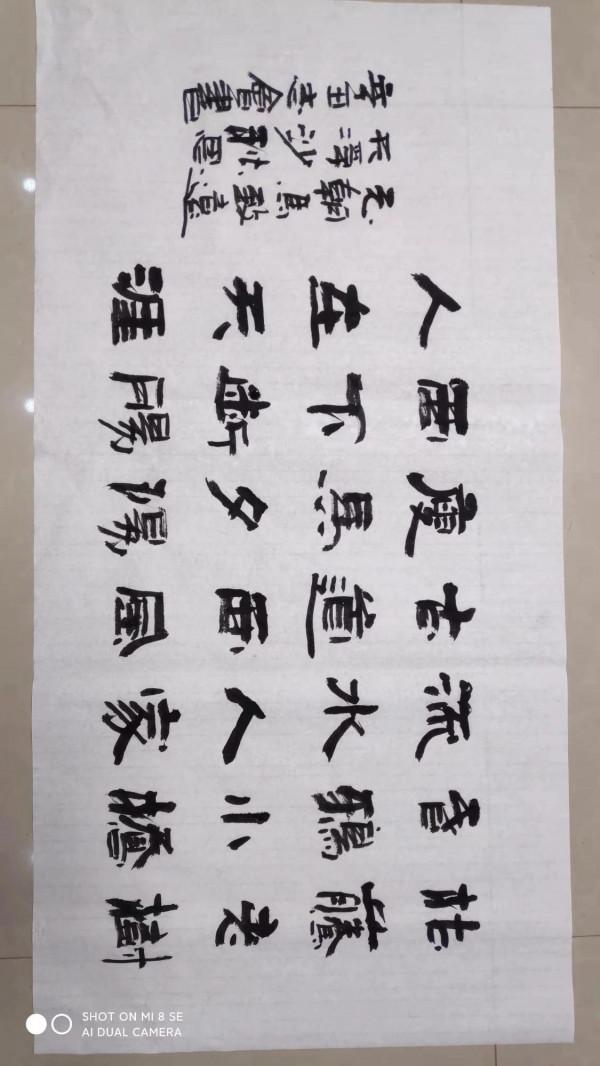 枯藤老樹
昏鴉小橋
流水人家
古道西風
瘦馬夕陽
西下斷腸
人在天涯
元朝馬致遠
天淨沙秋思
辛丑志會書
SHOT ON MI 8 SE
AI DUAL CAMERA